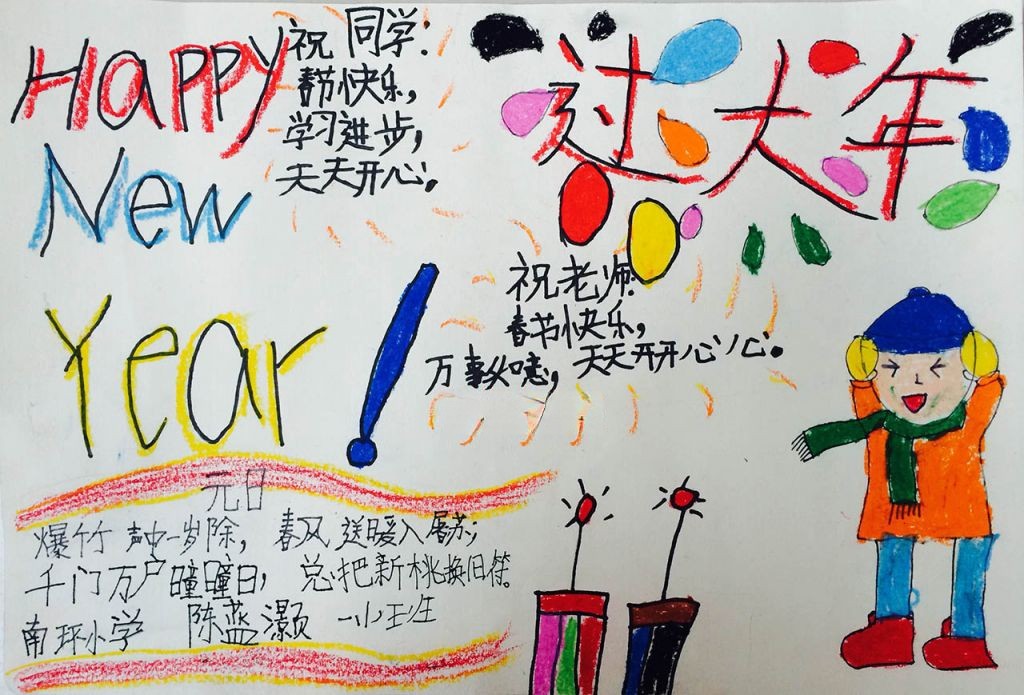 Happy
New
Year!
祝同学：
春节快乐，
学习进步，
天天开心。
过大年
祝老师：
春节快乐，
万事如意，天天开开心心。
元日
爆竹声中一岁除，春风送暖入屠苏；
千门万户曈曈日，总把新桃换旧符。
南环小学 陈蓝灏 一小班